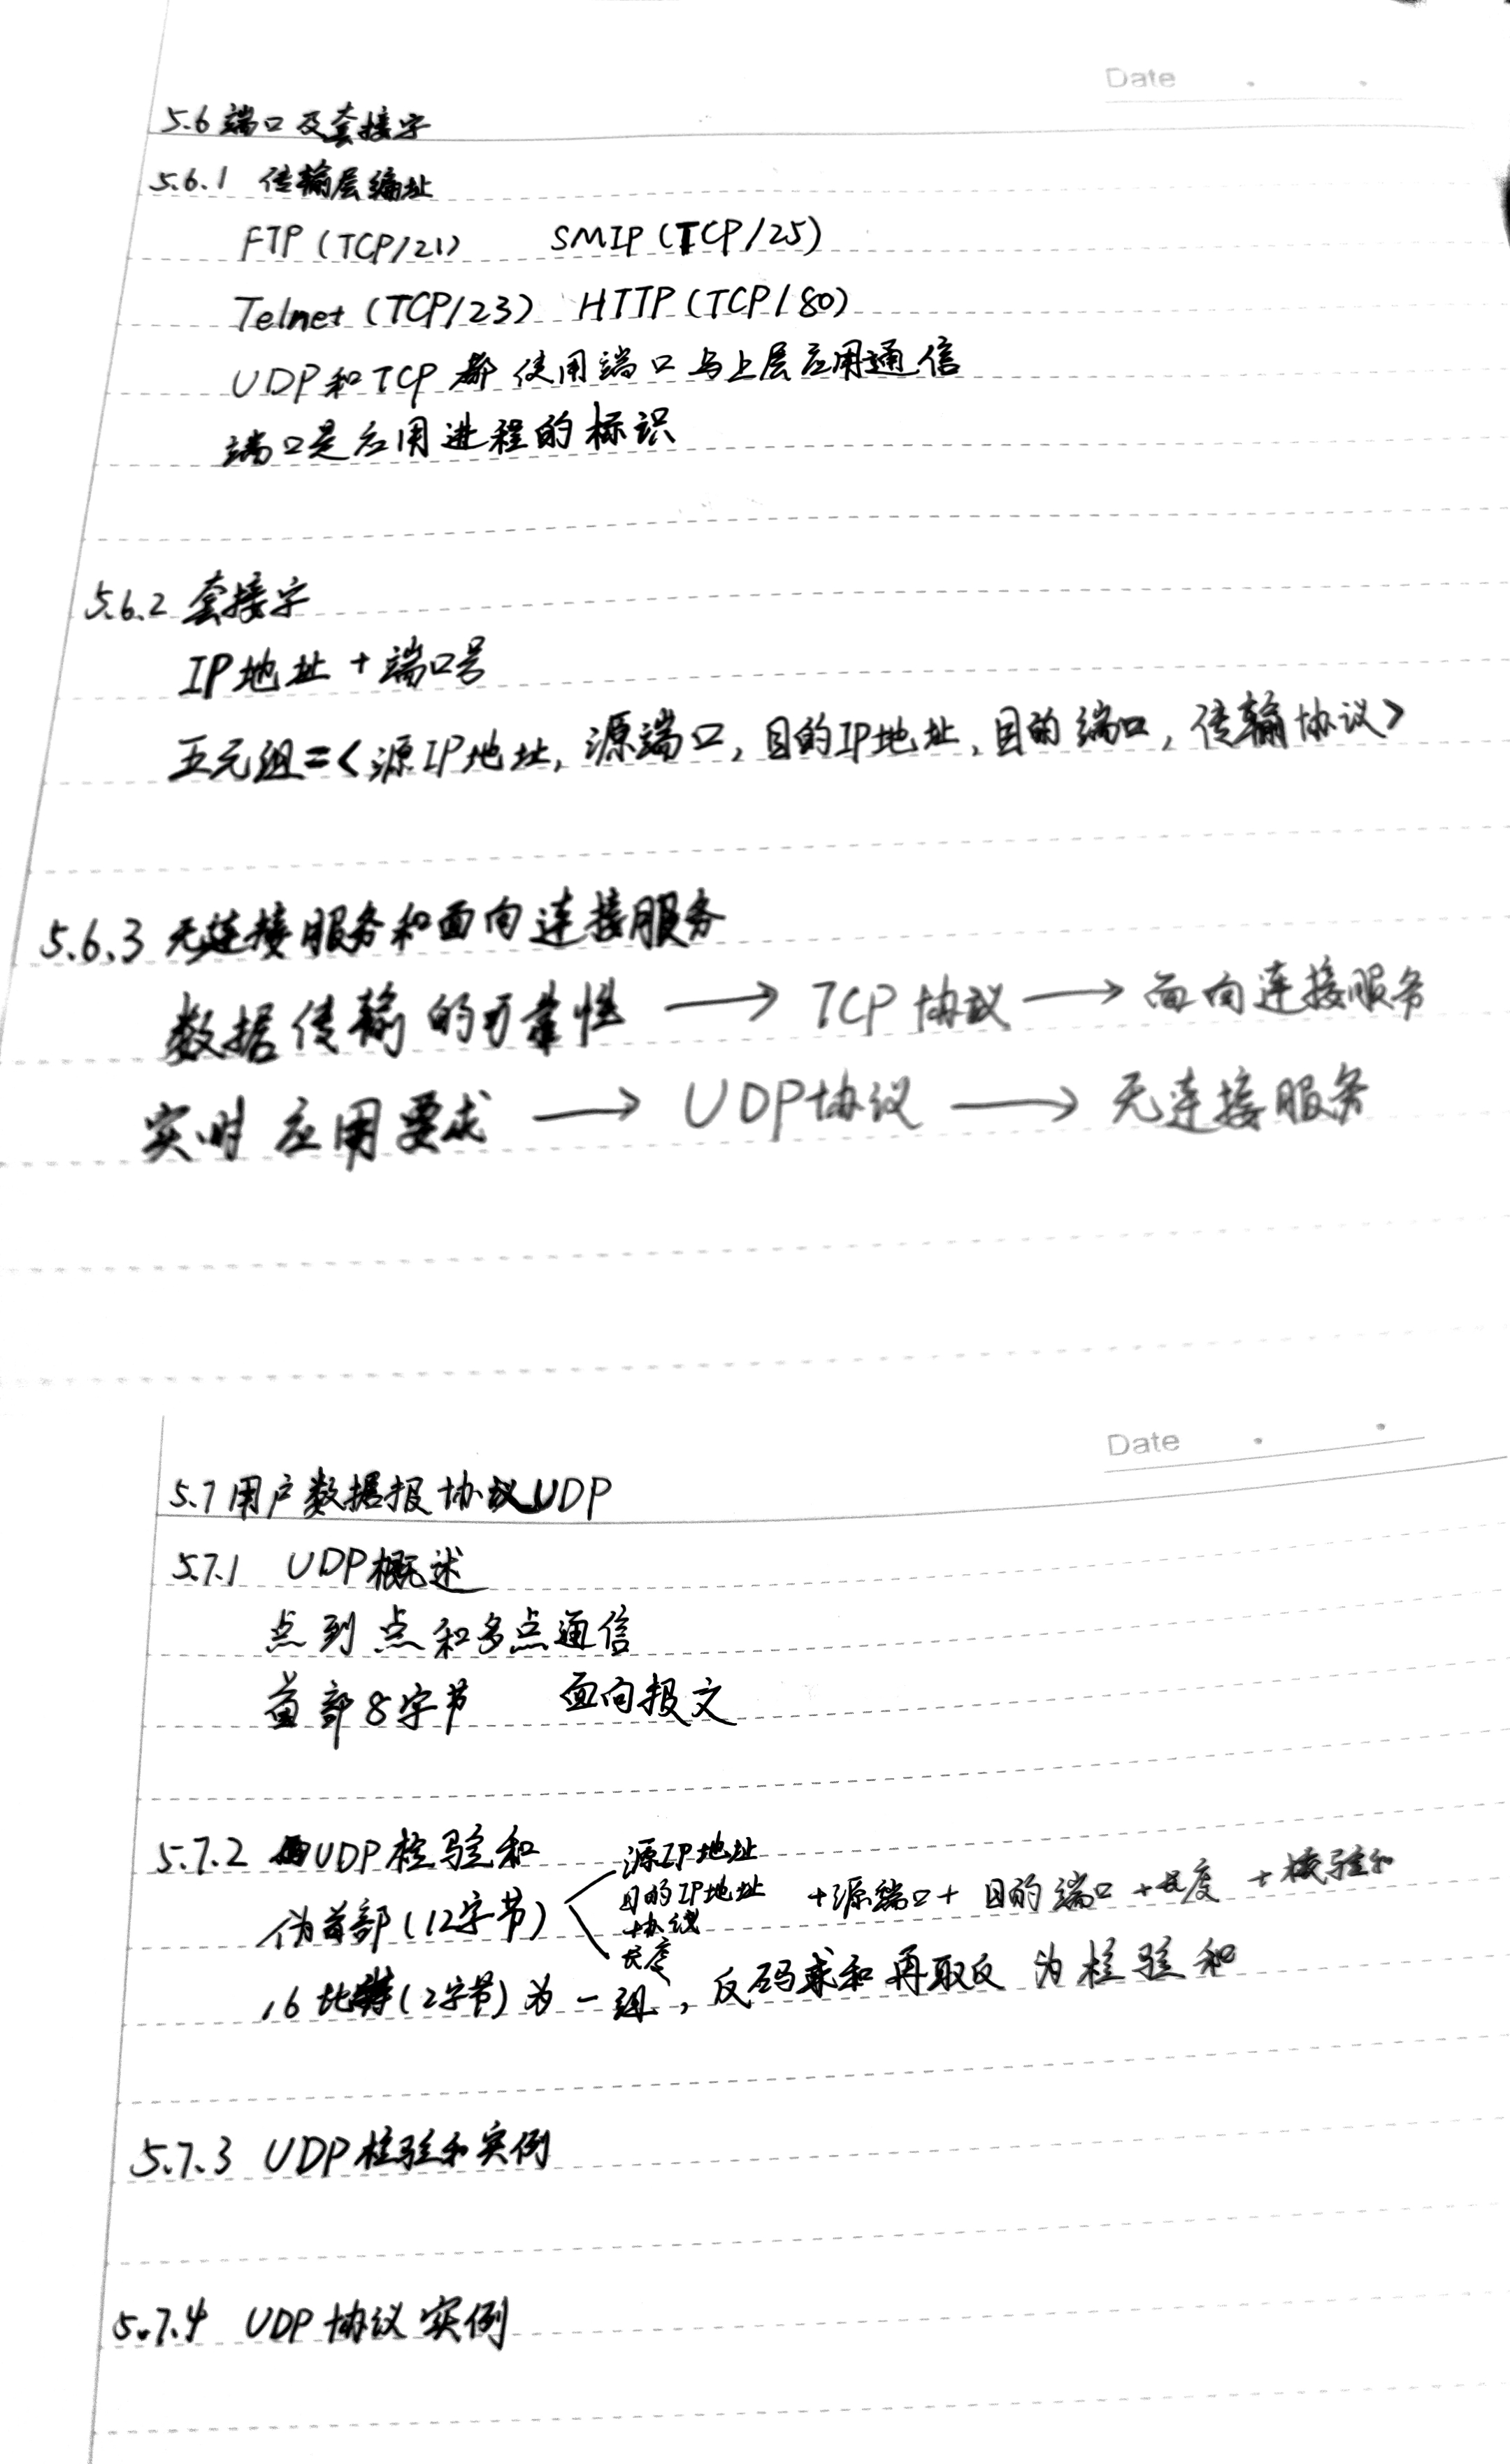 Date
5.6 端口及套接字
5.6.1 传输层编址
FTP (TCP/21) SMIP (TCP/25)
Telnet (TCP/23) HTTP (TCP/80)
UDP和TCP都使用端口与上层应用通信
端口是应用进程的标识
5.6.2 套接字
IP地址 + 端口号
五元组=<源IP地址, 源端口, 目的IP地址, 目的端口, 传输协议>
5.6.3 无连接服务和面向连接服务
数据传输的可靠性 → TCP协议 → 面向连接服务
实时应用要求 → UDP协议 → 无连接服务
Date
5.7 用户数据报协议UDP
5.7.1 UDP概述
点到点和多点通信
首部8字节 面向报文
5.7.2 UDP检验和
伪首部(12字节)
源IP地址
目的IP地址
协议
长度
+源端口+目的端口+长度+检验和
16比特(2字节)为一组, 反码求和再取反为检验和
5.7.3 UDP检验和实例
5.7.4 UDP协议实例